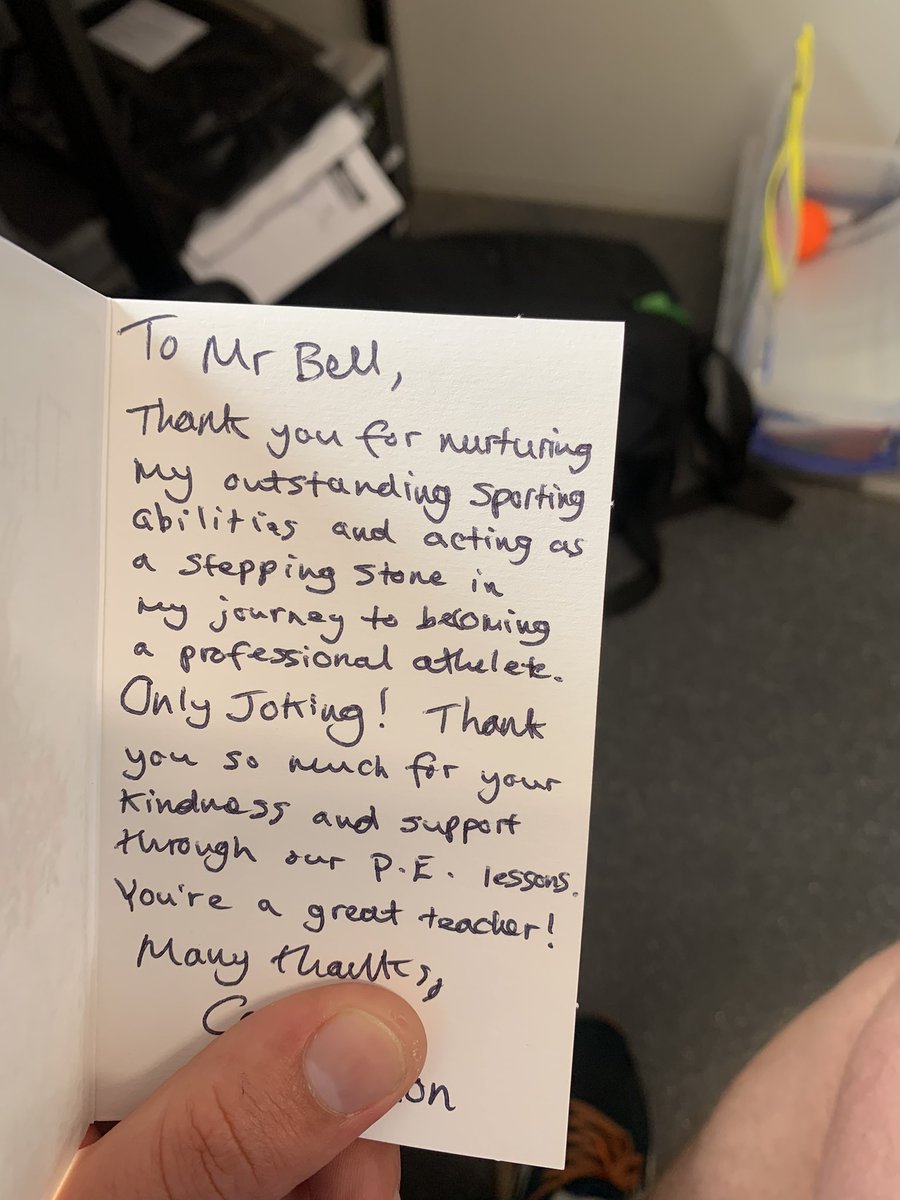 To Mr Bell,
Thank you for nurturing
my outstanding sporting
abilities and acting as
a stepping stone in
my journey to becoming
a professional athelete.
Only Joking! Thank
you so much for your
kindness and support
through our P.E. lessons.
You're a great teacher!
Many thanks,